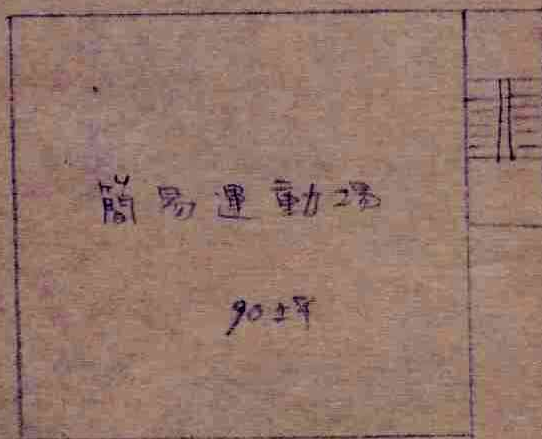 簡易運動場
90坪